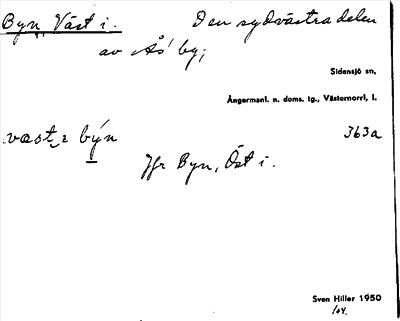 Byn, Väst i. Den sydvästra delen
av Ås by;
Sidensjö sn,
Ångermanl. n. doms. tg., Västernorrl. l.
väst i býn 363a
Jfr Byn, Öst i.
Sven Hiller 1950